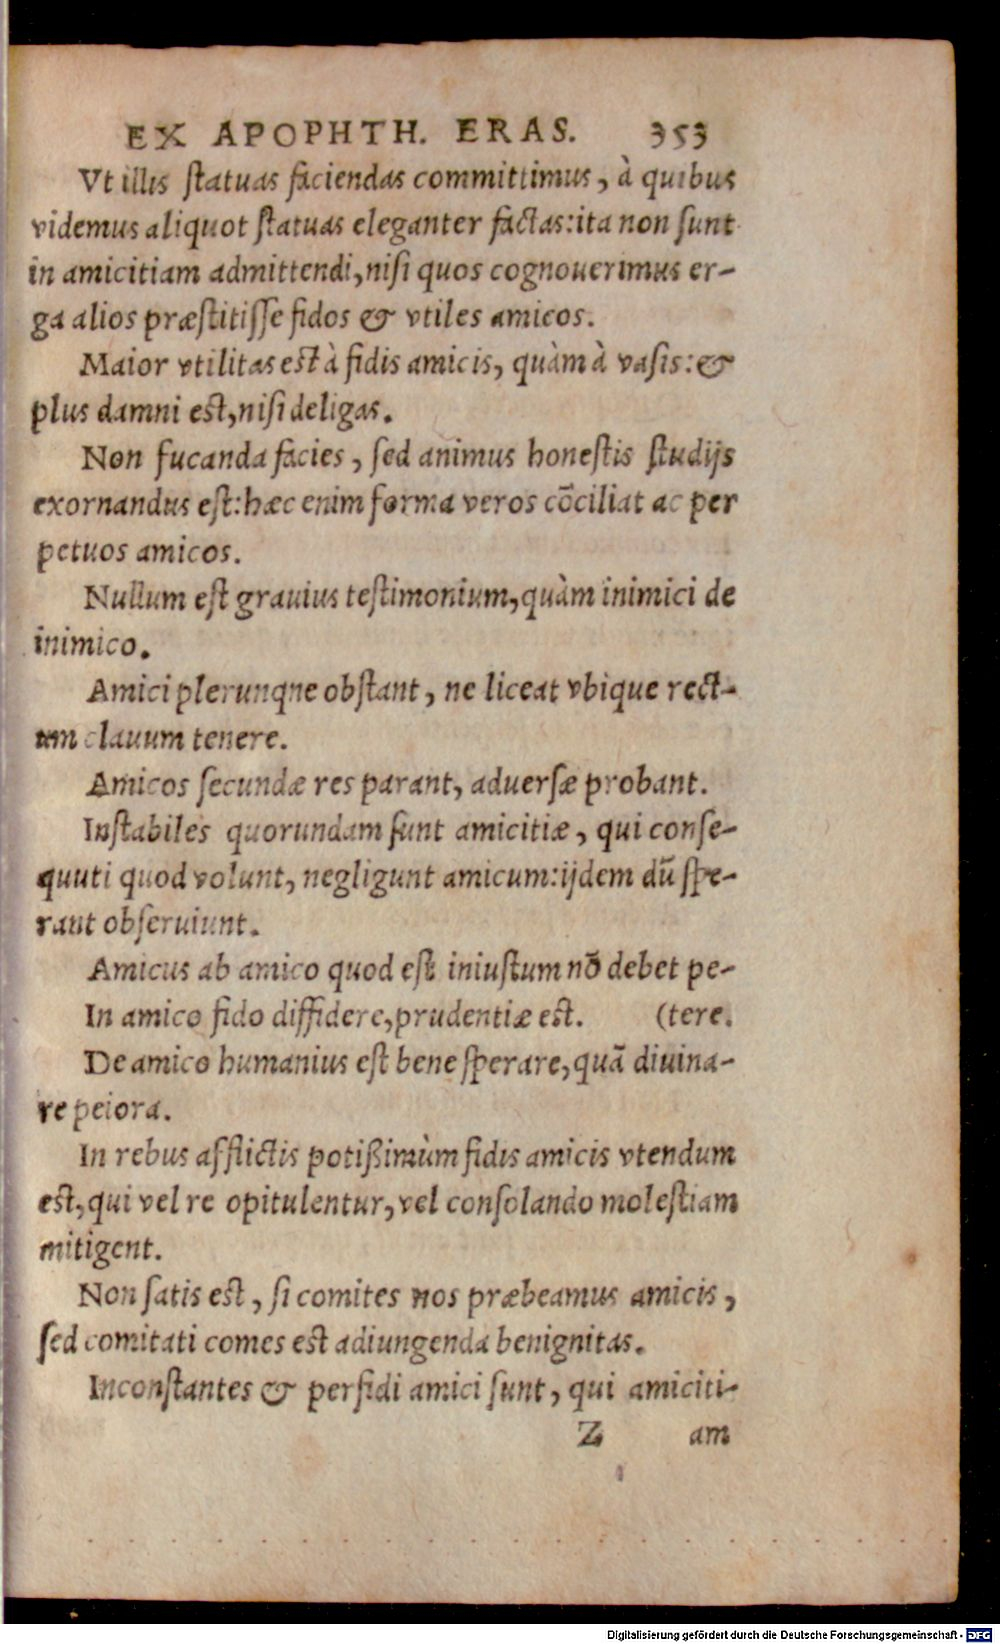 EX APOPHTH. ERAS. 353
Vt illis ſtatuas faciendas committimus, à quibus
videmus aliquot ſtatuas eleganter factas:ita non ſunt
in amicitiam admittendi,niſi quos cognouerimus er-
ga alios præſtitiſſe fidos & vtiles amicos.
Maior vtilitas est à fidis amicis, quàm à vaſis:&
plus damni est,niſi deligas.
Non fucanda facies, ſed animus honeſtis ſtudijs
exornandus eſt:hæc enim forma veros cōciliat ac per
petuos amicos.
Nullum eſt grauius teſtimonium,quàm inimici de
inimico.
Amici plerunqne obſtant, ne liceat vbique rect-
um clauum tenere.
Amicos ſecundæ res parant, aduerſæ probant.
Inſtabiles quorundam ſunt amicitiæ, qui conſe-
quuti quod volunt, negligunt amicum:ijdem dū ſpe-
rant obſeruiunt.
Amicus ab amico quod eſt iniuſtum nō debet pe-
In amico fido diffidere,prudentiæ est. (tere.
De amico humanius eſt bene ſperare,quā diuina-
re peiora.
In rebus afflictis potißimùm fidis amicis vtendum
est,qui vel re opitulentur,vel conſolando moleſtiam
mitigent.
Non ſatis est, ſi comites nos præbeamus amicis,
ſed comitati comes est adiungenda benignitas.
Inconſtantes & perfidi amici ſunt, qui amiciti-
Z am
Digitalisierung gefördert durch die Deutsche Forschungsgemeinschaft - DFG